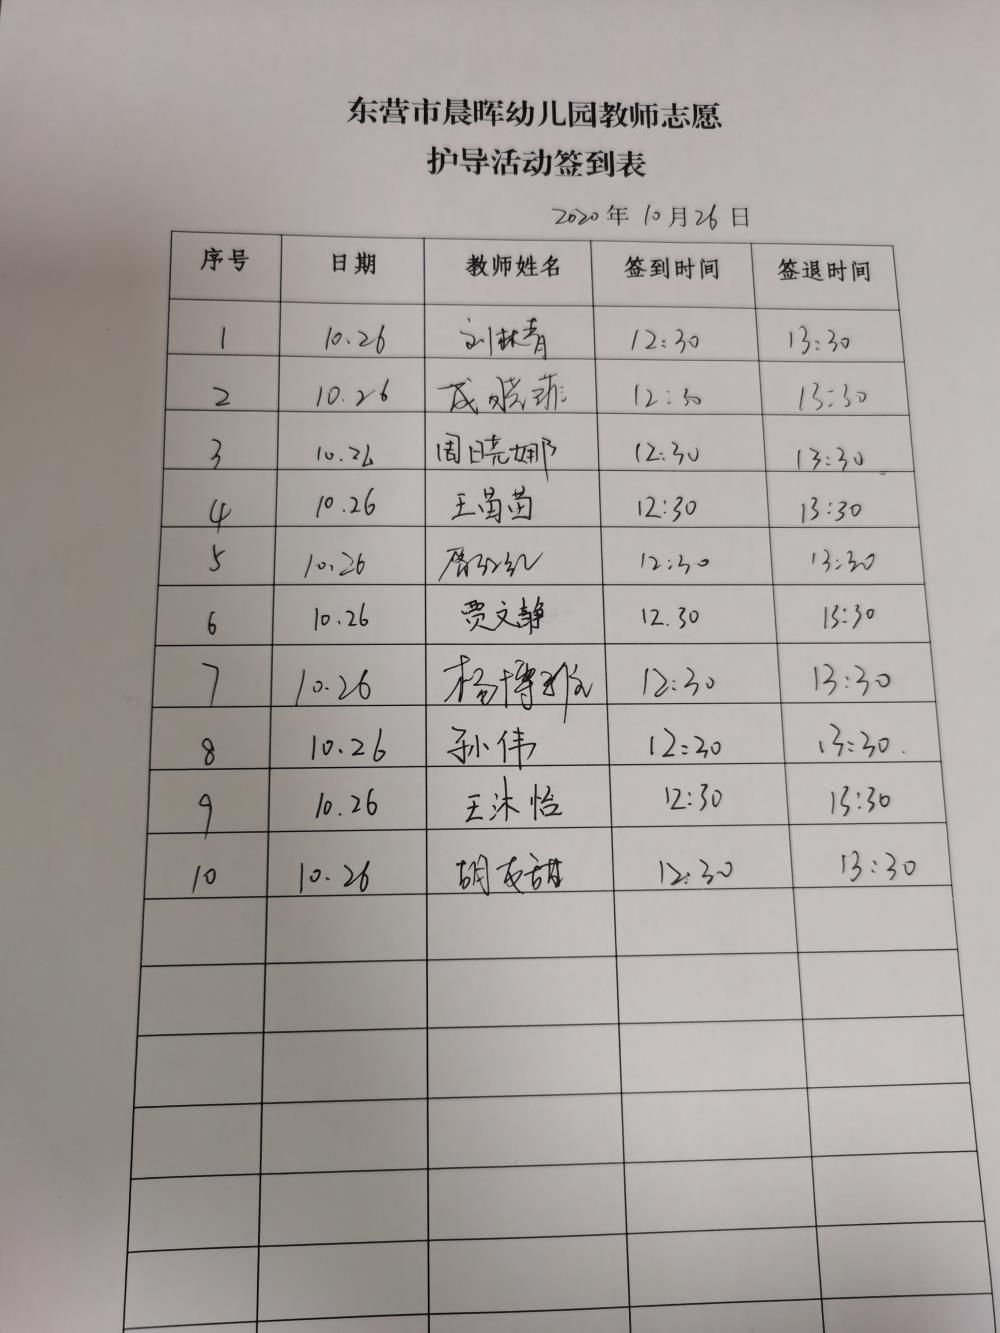 东营市晨晖幼儿园教师志愿
护导活动签到表
2020年10月26日
序号 日期 教师姓名 签到时间 签退时间
1 10.26 刘林青 12:30 13:30
2 10.26 12:30 13:30
3 10.26 周晓娜 12:30 13:30
4 10.26 王苗苗 12:30 13:30
5 10.26 12:30 13:30
6 10.26 贾文静 12.30 13:30
7 10.26 杨博雅 12:30 13:30
8 10.26 孙伟 12:30 13:30
9 10.26 王沐怡 12:30 13:30
10 10.26 12:30 13:30